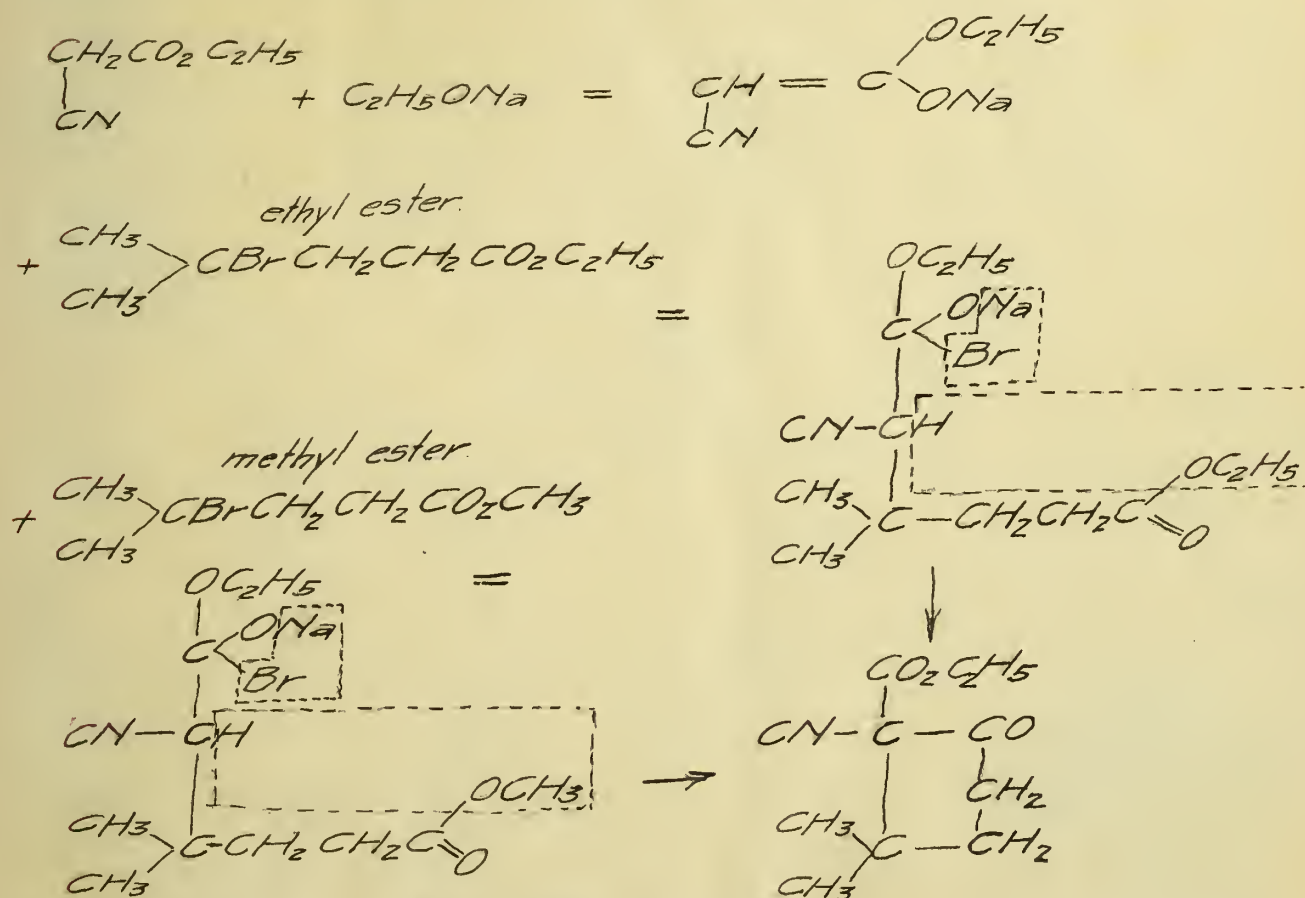 CH2CO2C2H5
CN
+ C2H5ONa =
CH = C
CN
OC2H5
ONa
ethyl ester.
+ CH3
CH3
CBrCH2CH2CO2C2H5
=
OC2H5
C
ONa
Br
CN-CH
OC2H5
CH3
CH3
C-CH2CH2C=O
methyl ester
+ CH3
CH3
CBrCH2CH2CO2CH3
=
OC2H5
C
ONa
Br
CN-CH
OCH3
CH3
CH3
C-CH2CH2C=O
CO2C2H5
CN-C-CO
CH2
CH3
CH3
C-CH2